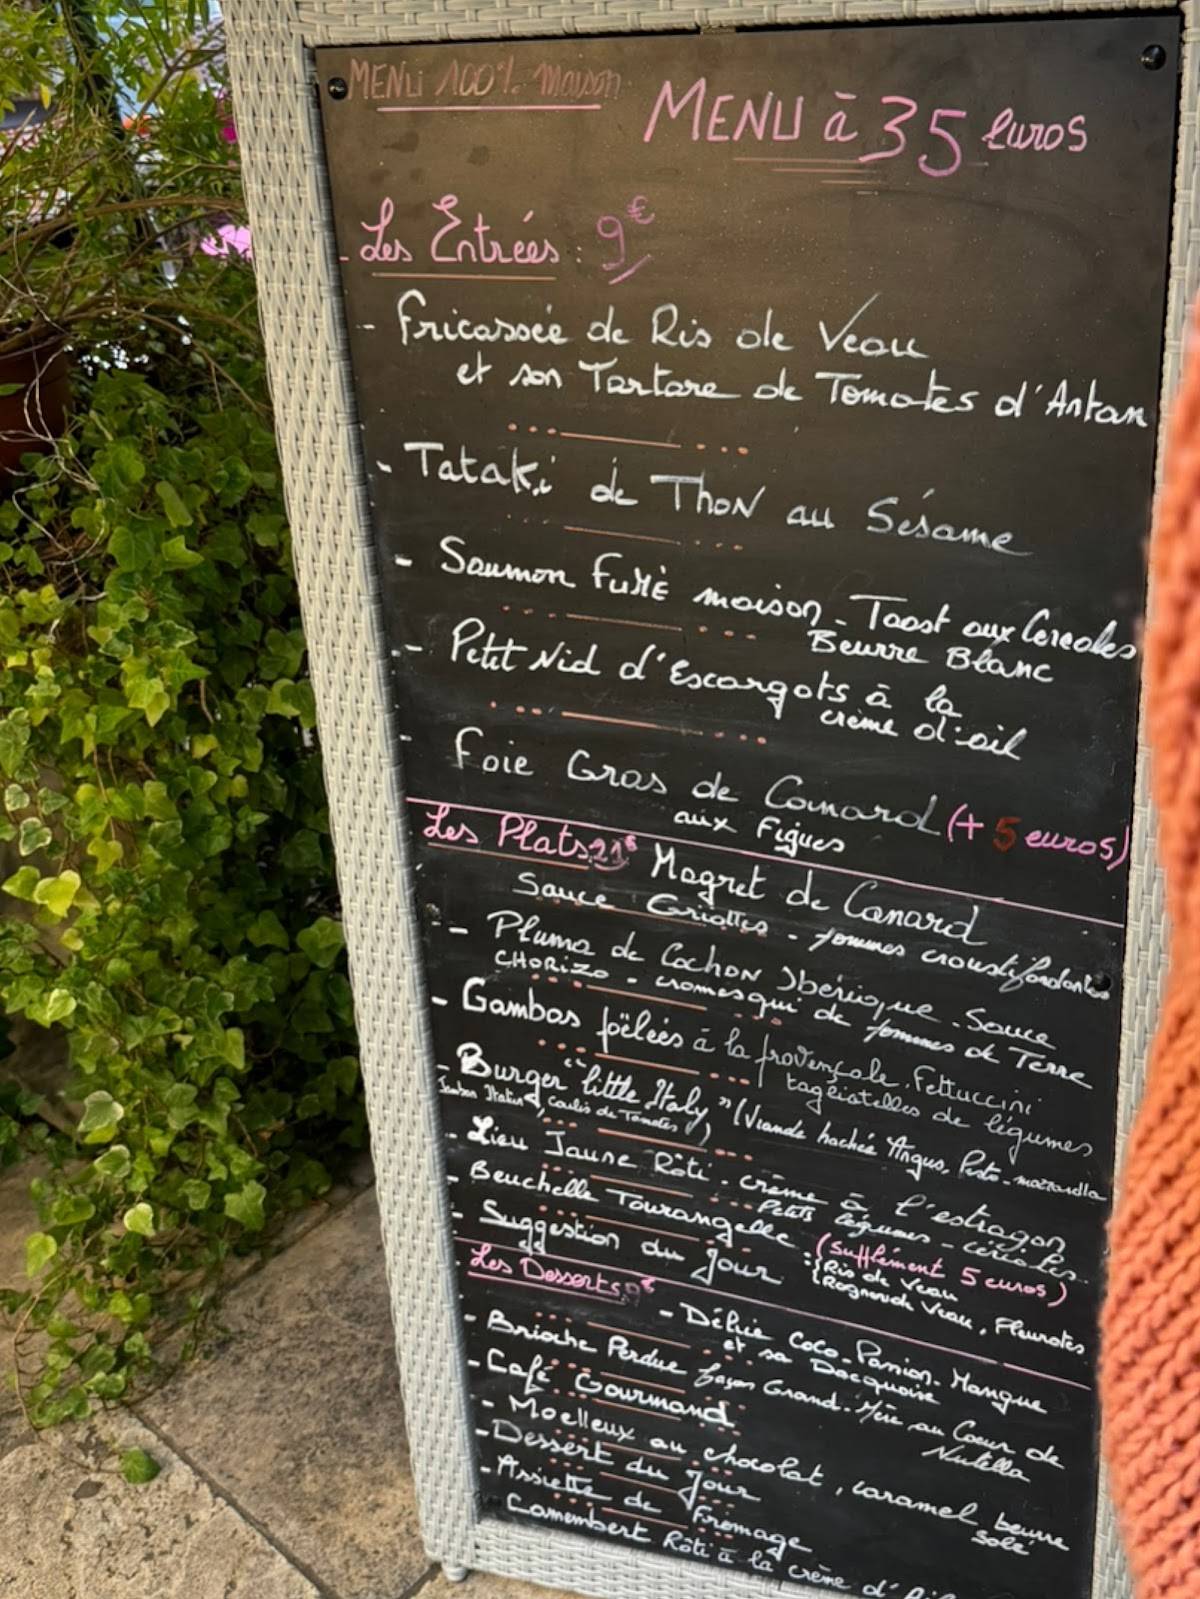 MENU 100% maison
MENU à 35 Euros
Les Entrées : 9€
- Fricassée de Ris de Veau
et son Tartare de Tomates d'Antan
- Tataki de Thon au Sésame
- Saumon FuMÉ maison - Toast aux Céréales
Beurre Blanc
- Petit Nid d'Escargots à la
crème d'ail
- Foie Gras de Canard (+ 5 euros)
aux Figues
Les Plats: 21€ Magret de Canard
Sauce Griottes - pommes croustifondantes
- Pluma de Cochon Ibérique - Sauce
CHORIZO - cromesqui de pommes de Terre
- Gambas pöêlées à la provençale. Fettuccini
tagliatelles de légumes
- Burger "little Italy" (Viande hachée Angus, Pesto - mozzarella
Jambon Italien, Coulis de Tomates)
- Lieu Jaune Rôti - crème à l'estragon
Petits légumes - céréales
- Beuchelle Tourangelle : (Supplément 5 euros)
(Ris de Veau
Rognon de Veau, Pleurotes
- Suggestion du Jour
Les Desserts 9€
- Délice Coco - Passion - Mangue
et sa Dacquoise
- Brioche Perdue façon Grand-Mère au Coeur de
Nutella
- Café Gourmand
- Moelleux au chocolat, caramel beurre
salé
- Dessert du Jour
- Assiette de Fromage
- Camembert Rôti à la crème